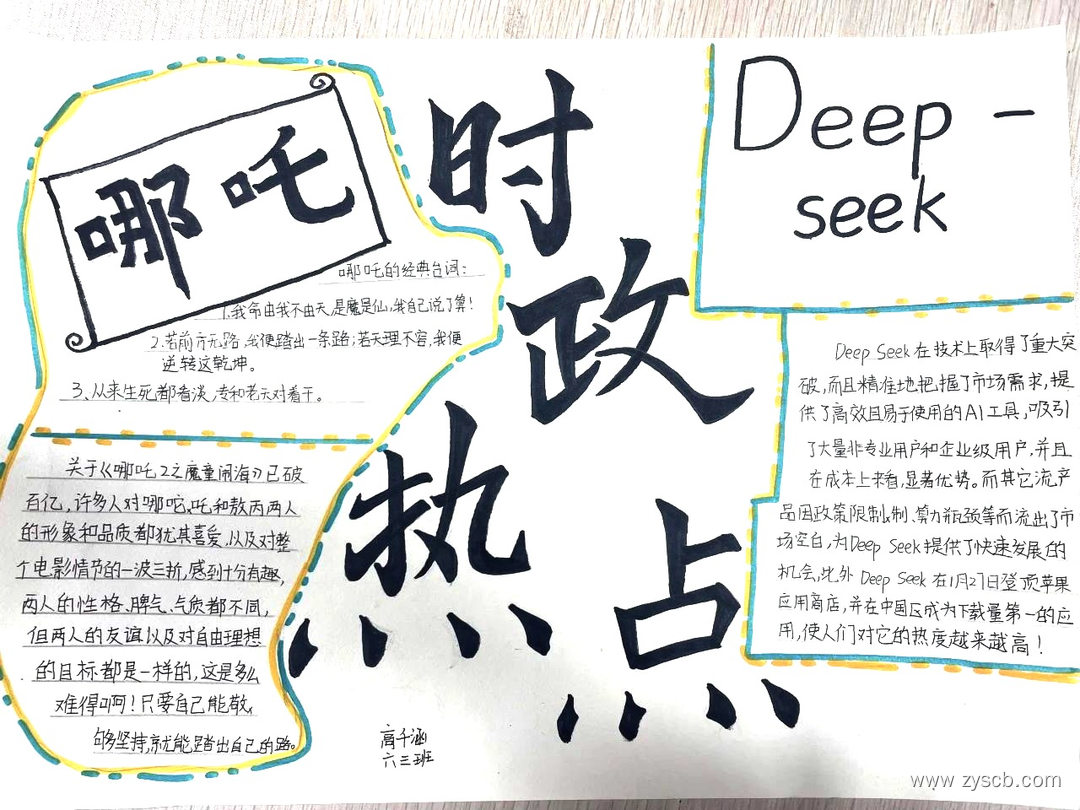 哪吒
哪吒的经典台词：
1.我命由我不由天,是魔是仙,我自己说了算！
2.若前方无路,我便踏出一条路；若天理不容,我便
逆转这乾坤。
3、从来生死都看淡,专和老天对着干。
关于《哪吒2之魔童闹海》已破
百亿，许多人对哪吒和敖丙两人
的形象和品质都犹其喜爱,以及对整
个电影情节的一波三折,感到十分有趣,
两人的性格、脾气、气质都不同,
但两人的友谊以及对自由理想
的目标都是一样的,这是多么
难得啊！只要自己能敢,
够坚持,就能踏出自己的路。
时政热点
Deep -
seek
Deep Seek在技术上取得了重大突
破,而且精准地把握了市场需求,提
供了高效且易于使用的AI工具，吸引
了大量非专业用户和企业级用户,并且
在成本上来看,显著优势。而其它流产
品因政策限制、算力瓶颈等而流出了市
场空白,为Deep Seek提供了快速发展的
机会,此外 Deep Seek在1月27日登顶苹果
应用商店,并在中国区成为下载量第一的应
用,使人们对它的热度越来越高！
高千涵
六三班
www.zyscb.com